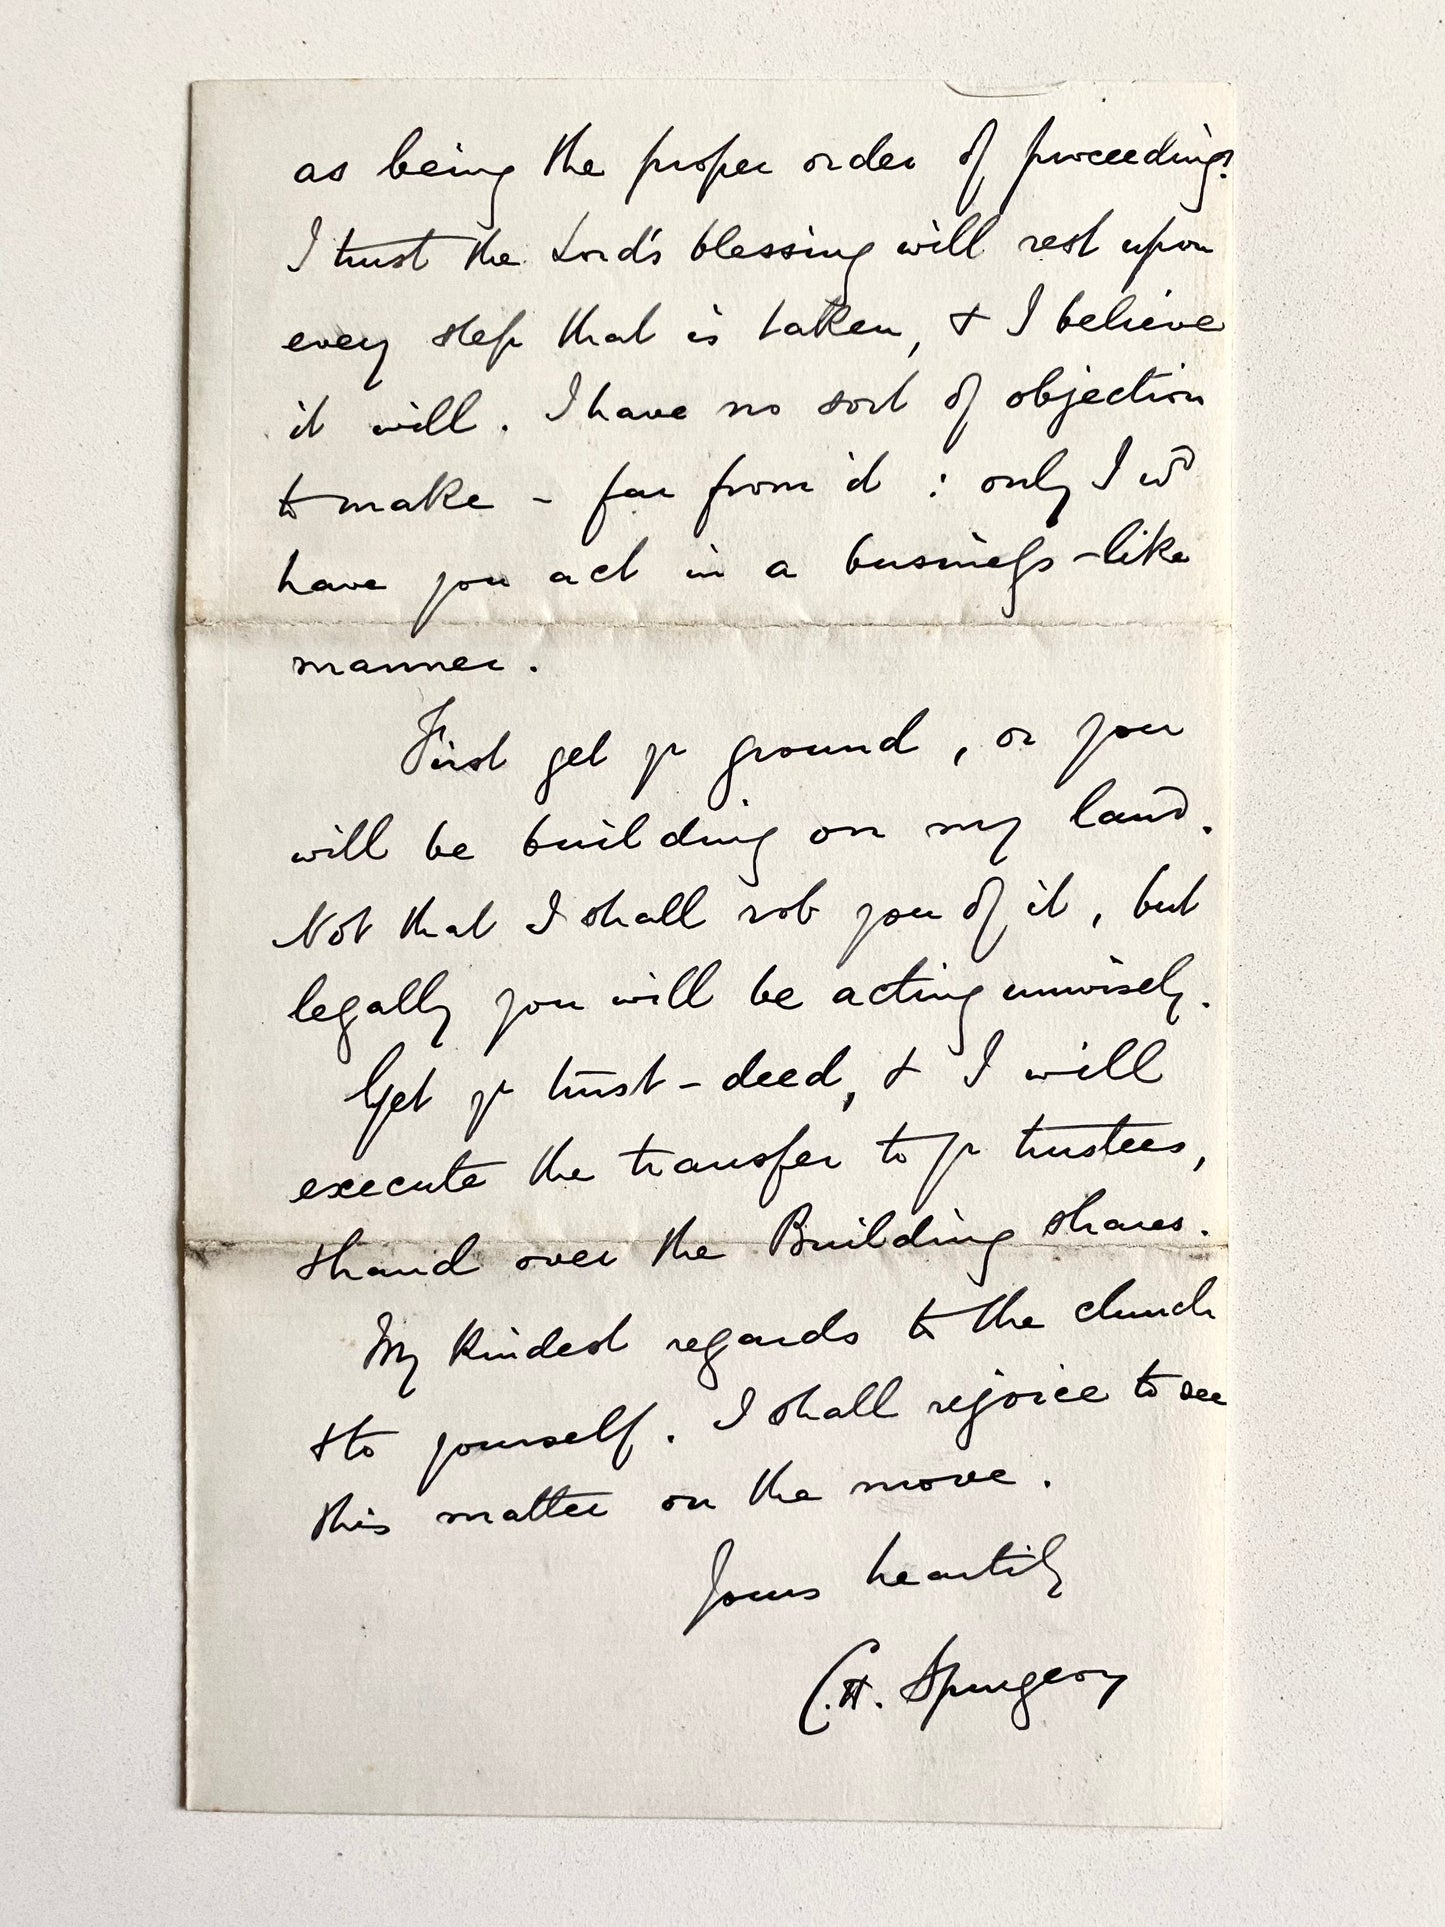 as being the proper order of proceedings.
I trust the Lord's blessing will rest upon
every step that is taken, & I believe
it will. I have no sort of objection
to make - far from it : only I wd
have you act in a business-like
manner.
First get yr ground, or you
will be building on my land.
Not that I shall rob you of it, but
legally you will be acting unwisely.
Get yr trust-deed, & I will
execute the transfer to yr trustees,
& hand over the Building shares.
My kindest regards to the church
& to yourself. I shall rejoice to see
this matter on the move.
Yours heartily
C. H. Spurgeon